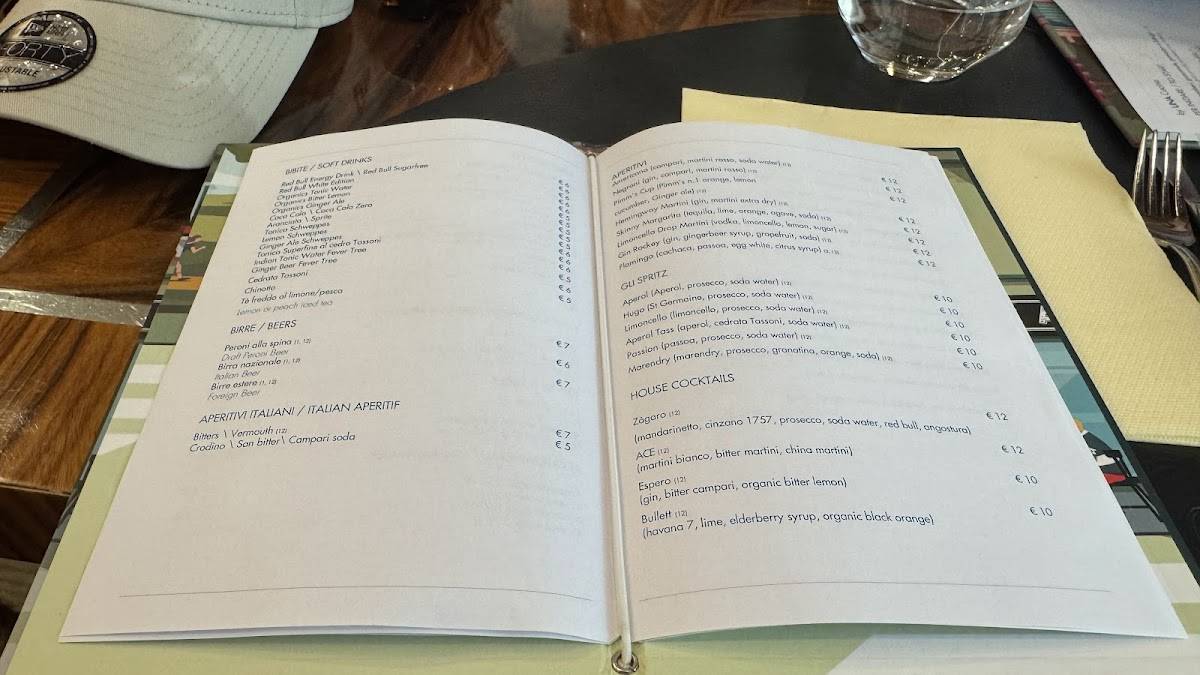 FORTY
USTABLE
BIBITE / SOFT DRINKS
Red Bull Energy Drink \ Red Bull Sugarfree
Red Bull White Edition
Organics Tonic Water
Organics Bitter Lemon
Organics Ginger Ale
Coca Cola \ Coca Cola Zero
Aranciata \ Sprite
Tonica Schweppes
Lemon Schweppes
Ginger Ale Schweppes
Tonica Superfine al cedro Tassoni
Indian Tonic Water Fever Tree
Ginger Beer Fever Tree
Cedrata Tassoni
Chinotto € 6
Tè freddo al limone/pesca € 5
Lemon or peach iced tea
BIRRE / BEERS
Peroni alla spina (1, 12) € 7
Draft Peroni Beer
Birra nazionale (1, 12) € 6
Italian Beer
Birre estere (1, 12) € 7
Foreign Beer
APERITIVI ITALIANI / ITALIAN APERITIF
Bitters \ Vermouth (12) € 7
Crodino \ San bitter\ Campari soda € 5
APERITIVI
Americano (campari, martini rosso, soda water) (12) € 12
Negroni (gin, campari, martini rosso) (12) € 12
Pimm's Cup (Pimm's n.1 orange, lemon € 12
cucumber, Ginger ale) (12)
Hemingway Martini (gin, martini extra dry) (12) € 12
Skinny Margarita (tequila, lime, orange, agave, soda) (12) € 12
Limoncello Drop Martini (vodka, limoncello, lemon, sugar) (12) € 12
Gin Rockey (gin, gingerbeer syrup, grapefruit, soda) (12) € 12
Flamingo (cachaca, passoa, egg white, citrus syrup) (3, 12) € 12
GLI SPRITZ
Aperol (Aperol, prosecco, soda water) (12) € 10
Hugo (St Germaine, prosecco, soda water) (12) € 10
Limoncello (limoncello, prosecco, soda water) (12) € 10
Aperol Tass (aperol, cedrata Tassoni, soda water) (12) € 10
Passion (passoa, prosecco, soda water) (12) € 10
Marendry (marendry, prosecco, granatina, orange, soda) (12) € 10
HOUSE COCKTAILS
Zàgara (12) € 12
(mandarinetto, cinzano 1757, prosecco, soda water, red bull, angostura)
ACE (12) € 12
(martini bianco, bitter martini, china martini)
Espero (12) € 10
(gin, bitter campari, organic bitter lemon)
Bullett (12) € 10
(havana 7, lime, elderberry syrup, organic black orange)